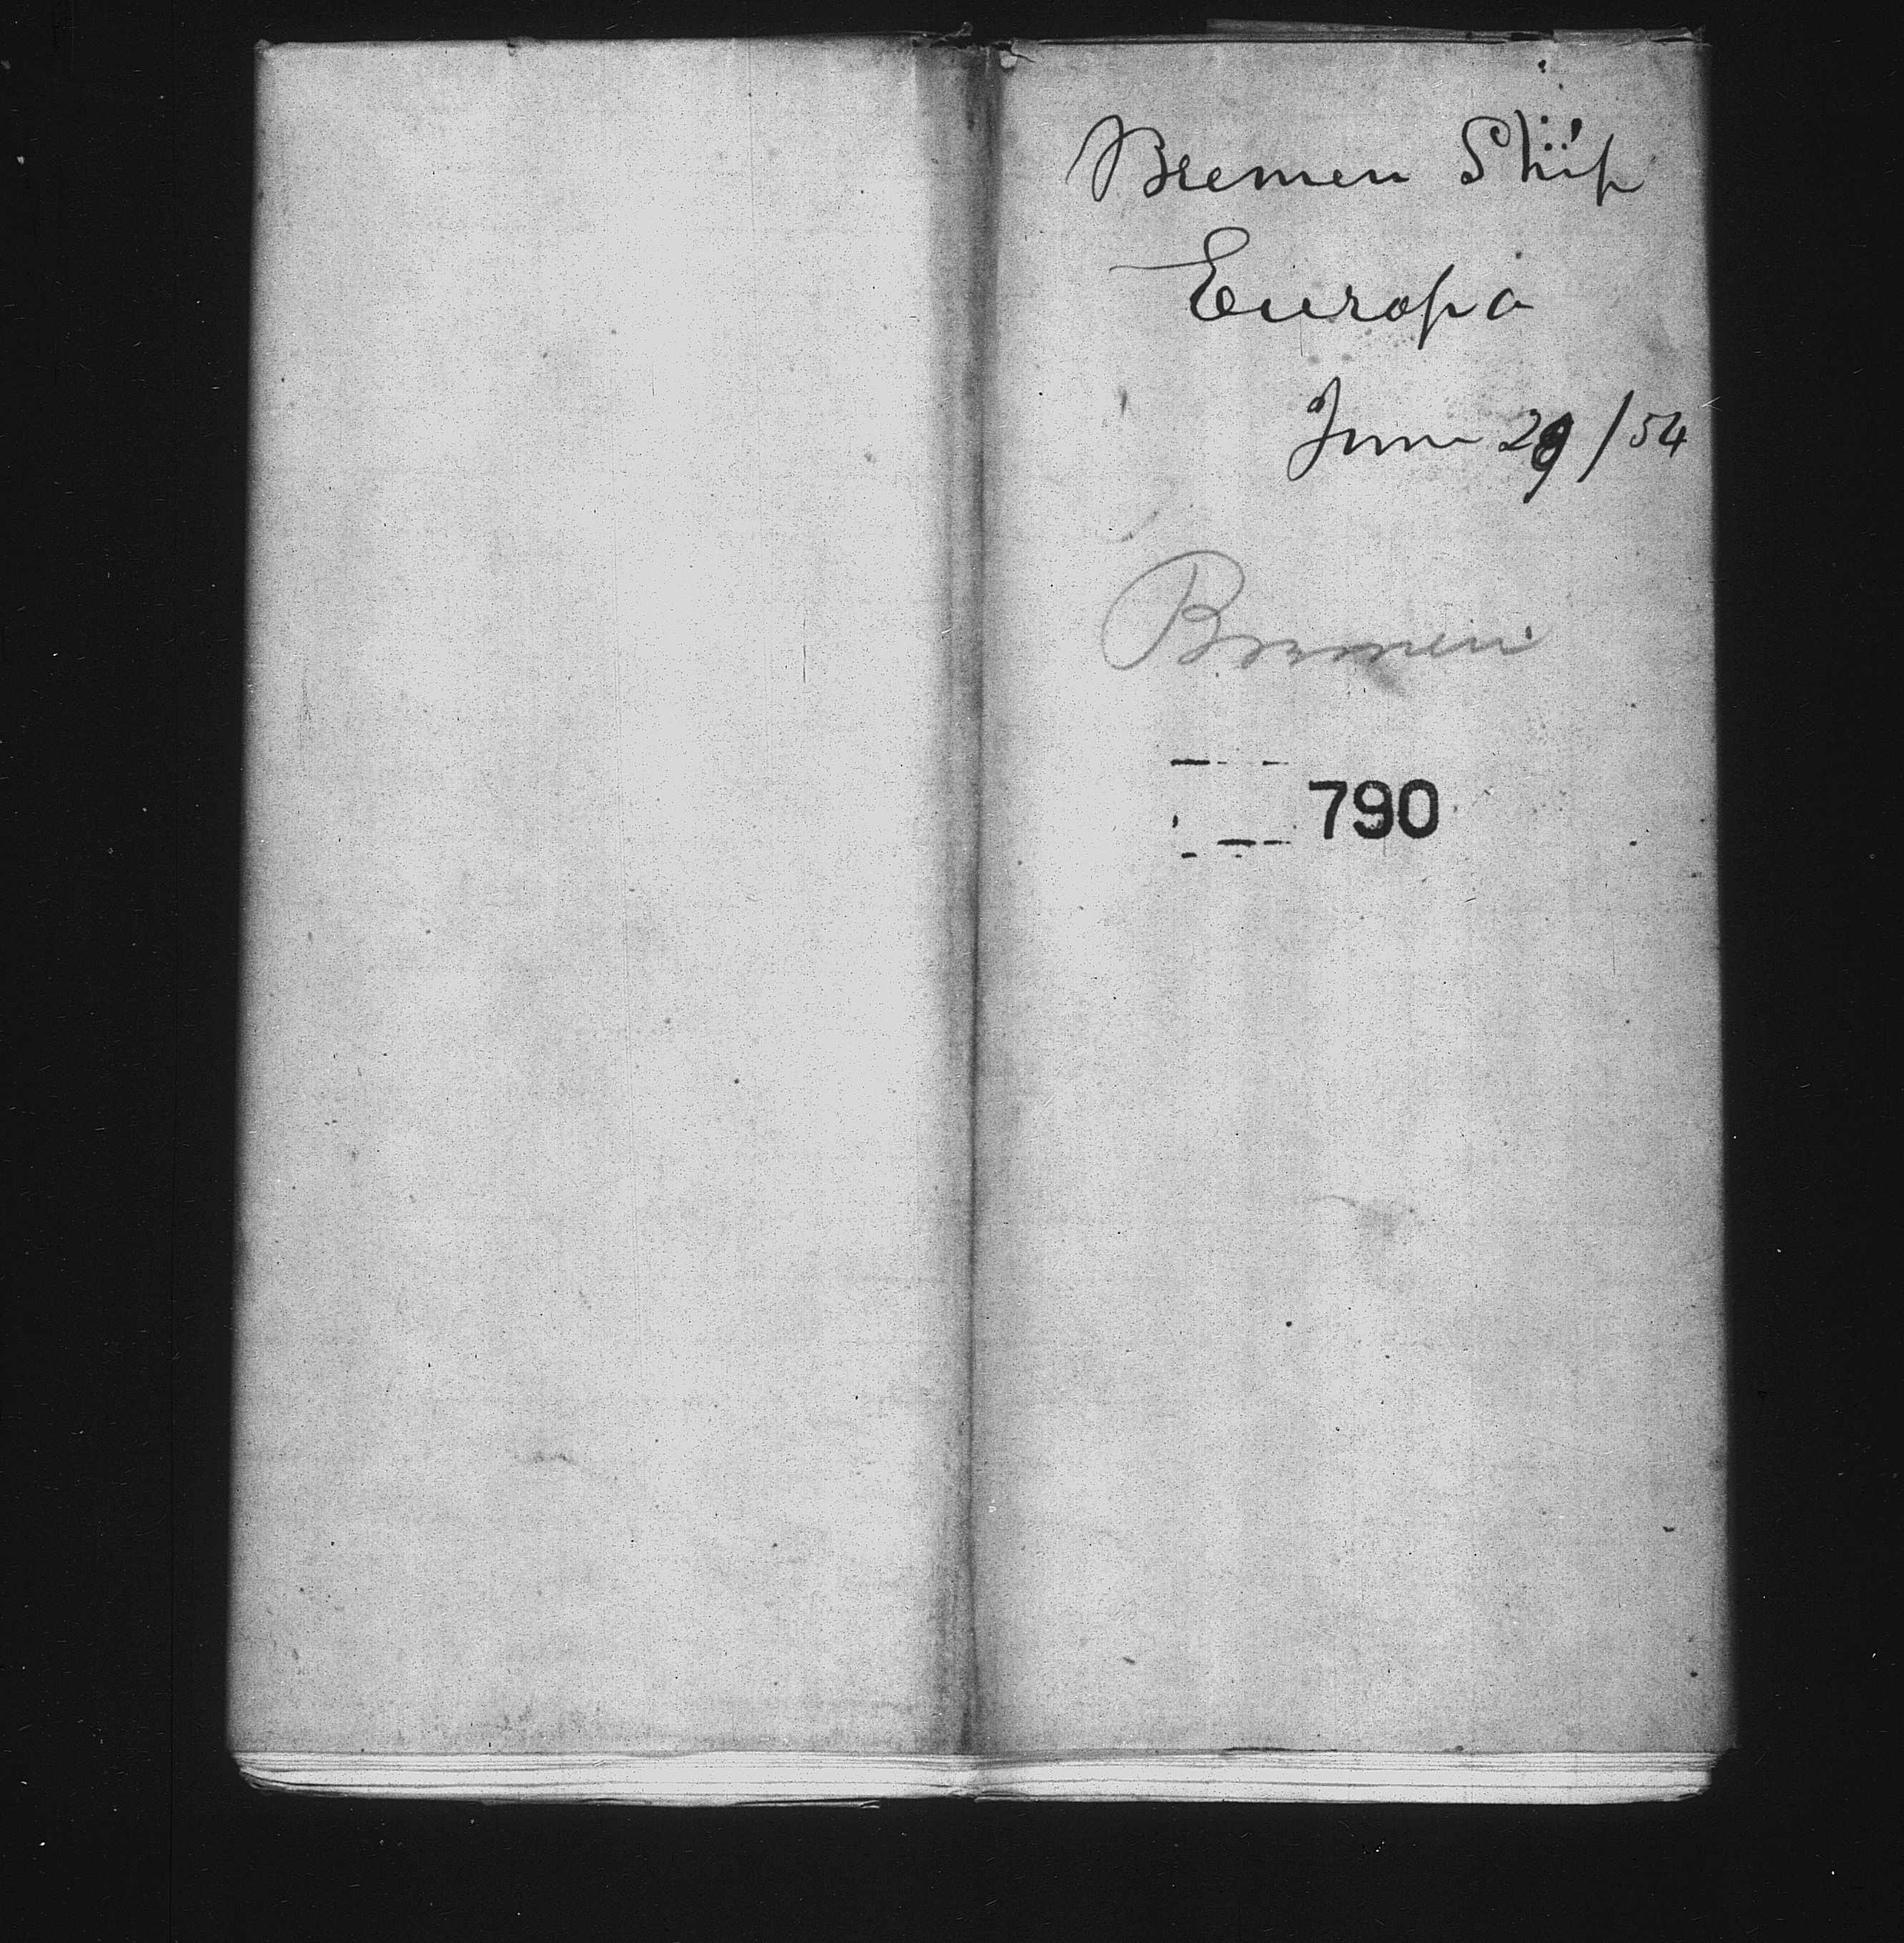 Bremen Ship
Europa
June 29/54
Bremen
790